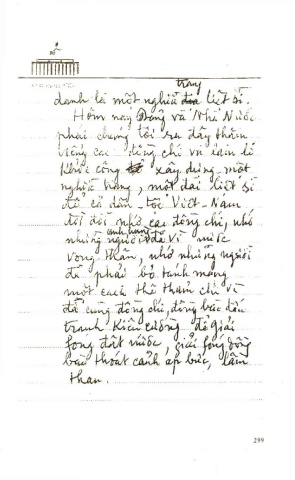 trang
danh là một nghĩa liệt sĩ.
Hôm nay Đảng và Nhà Nước
phái chúng tôi ra đây thăm
viếng các đồng chí và làm lễ
khởi công xây dựng một
nghĩa trang, một đài liệt sĩ
để cả dân tộc Việt-Nam
đời đời nhớ các đồng chí, nhớ
anh hùng
những người đã vì nước
vong thân, nhớ những người
đã phải bỏ tánh mạng
một cách thê thảm chỉ vì
đã cùng đồng chí, đồng bào đấu
tranh kiên cường để giải
fóng đất nước, giải fóng đồng
bào thoát cảnh áp bức, lầm
than.
299